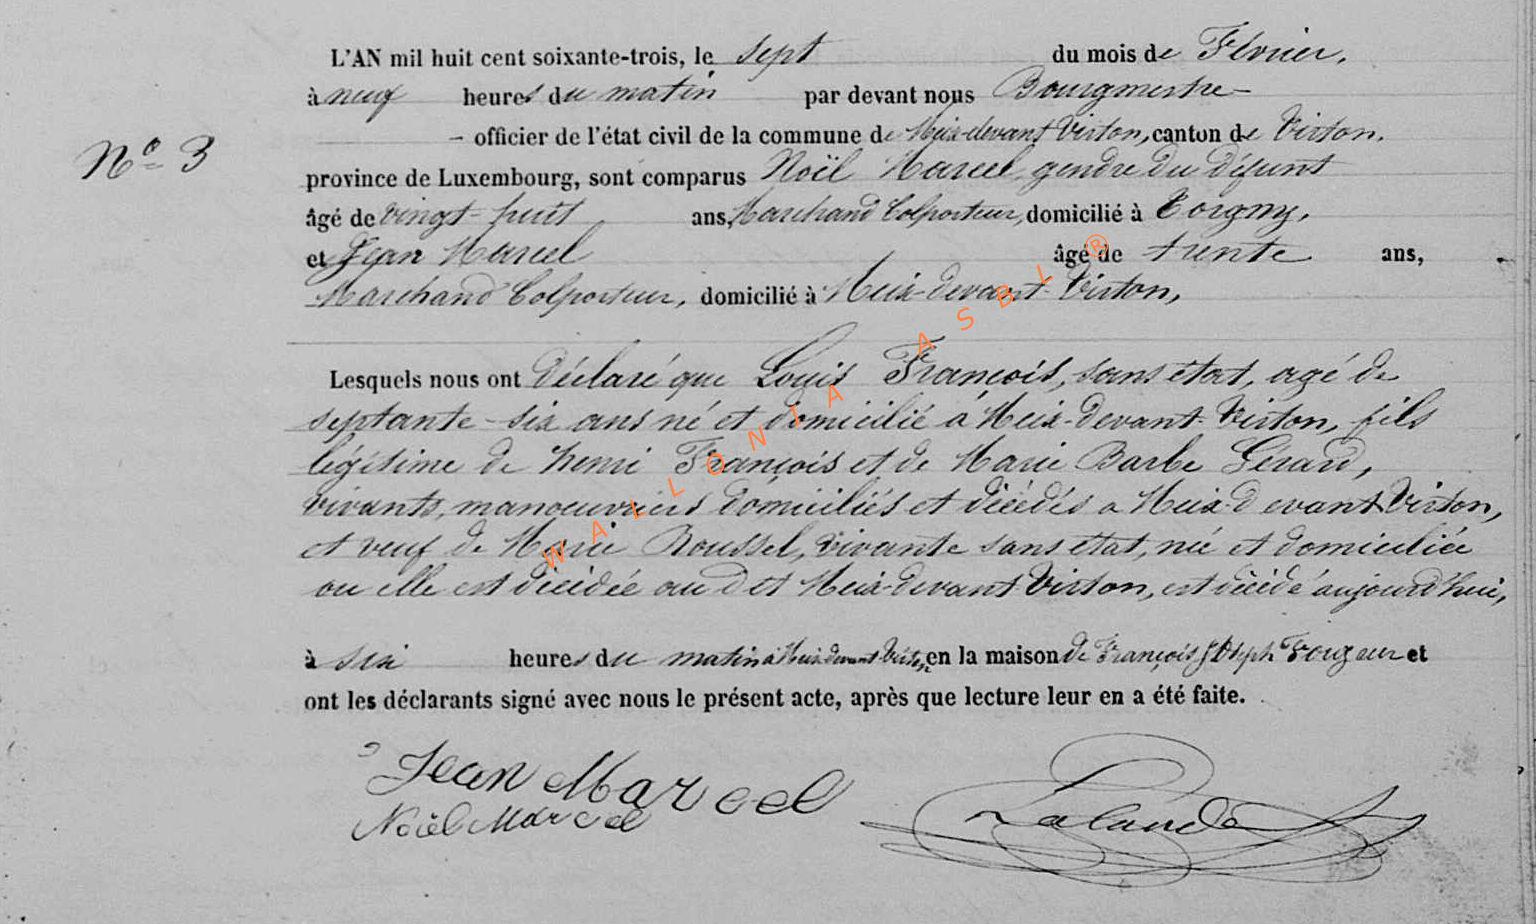 L'AN mil huit cent soixante-trois, le sept du mois de Février,
à neuf heures du matin par devant nous Bourgmestre
N° 3
officier de l'état civil de la commune de Meix-devant Virton, canton de Virton,
province de Luxembourg, sont comparus Noël Marcel, gendre du défunt
âgé de vingt-huit ans, Marchand Colporteur, domicilié à Torgny,
et Jean Marcel âgé de trente ans,
Marchand Colporteur, domicilié à Meix-devant-Virton,
Lesquels nous ont Déclaré que Louis François, sans état, agé de
septante-six ans né et domicilié à Meix-devant-Virton, fils
légitime de henri François et de Marie Barbe Gerard,
vivants, manoeuvriers domiciliés et décédés a Meix-devant Virton,
et veuf de Marie Roussel, vivante sans état, née et domiciliée
ou elle est décidée au dit Meix-devant Virton, est décédé aujourd'hui,
à six heures du matin à Meix devant Virton, en la maison de François Joseph et
ont les déclarants signé avec nous le présent acte, après que lecture leur en a été faite.
Jean Marcel
Noël Marcel
Lalande
WALLONIA ASBL ®